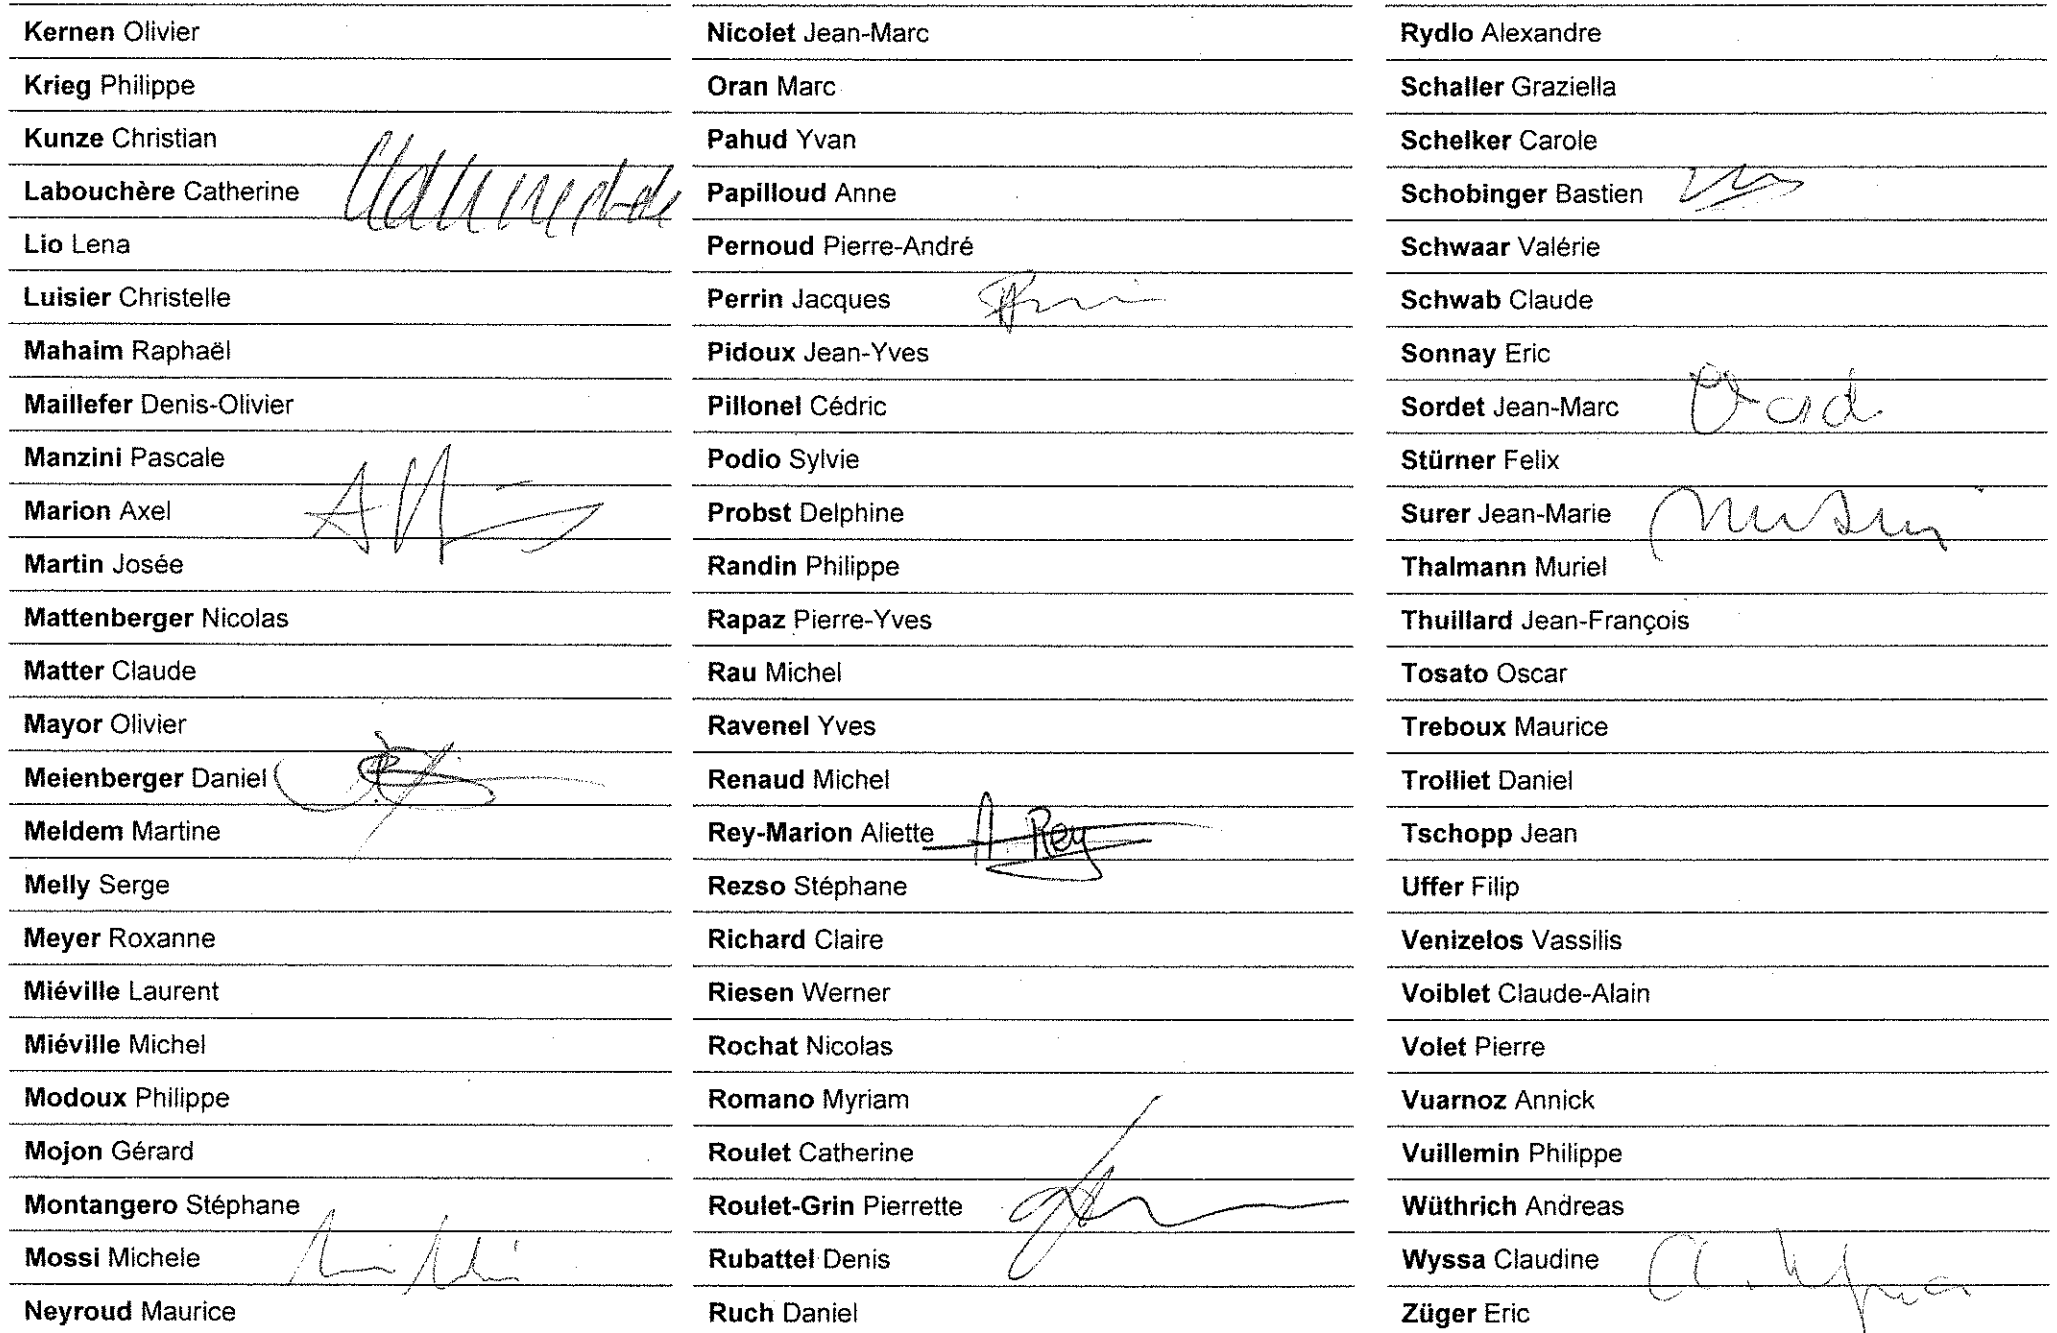 Kernen Olivier
Krieg Philippe
Kunze Christian
Labouchère Catherine
Lio Lena
Luisier Christelle
Mahaim Raphaël
Maillefer Denis-Olivier
Manzini Pascale
Marion Axel
Martin Josée
Mattenberger Nicolas
Matter Claude
Mayor Olivier
Meienberger Daniel
Meldem Martine
Melly Serge
Meyer Roxanne
Miéville Laurent
Miéville Michel
Modoux Philippe
Mojon Gérard
Montangero Stéphane
Mossi Michele
Neyroud Maurice
Nicolet Jean-Marc
Oran Marc
Pahud Yvan
Papilloud Anne
Pernoud Pierre-André
Perrin Jacques
Pidoux Jean-Yves
Pillonel Cédric
Podio Sylvie
Probst Delphine
Randin Philippe
Rapaz Pierre-Yves
Rau Michel
Ravenel Yves
Renaud Michel
Rey-Marion Aliette A Rey
Rezso Stéphane
Richard Claire
Riesen Werner
Rochat Nicolas
Romano Myriam
Roulet Catherine
Roulet-Grin Pierrette
Rubattel Denis
Ruch Daniel
Rydlo Alexandre
Schaller Graziella
Schelker Carole
Schobinger Bastien
Schwaar Valérie
Schwab Claude
Sonnay Eric
Sordet Jean-Marc
Stürner Felix
Surer Jean-Marie
Thalmann Muriel
Thuillard Jean-François
Tosato Oscar
Treboux Maurice
Trolliet Daniel
Tschopp Jean
Uffer Filip
Venizelos Vassilis
Voiblet Claude-Alain
Volet Pierre
Vuarnoz Annick
Vuillemin Philippe
Wüthrich Andreas
Wyssa Claudine
Züger Eric